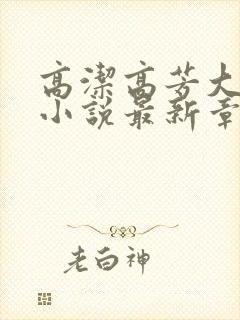 高潔高芳大
小說最新章
老白神